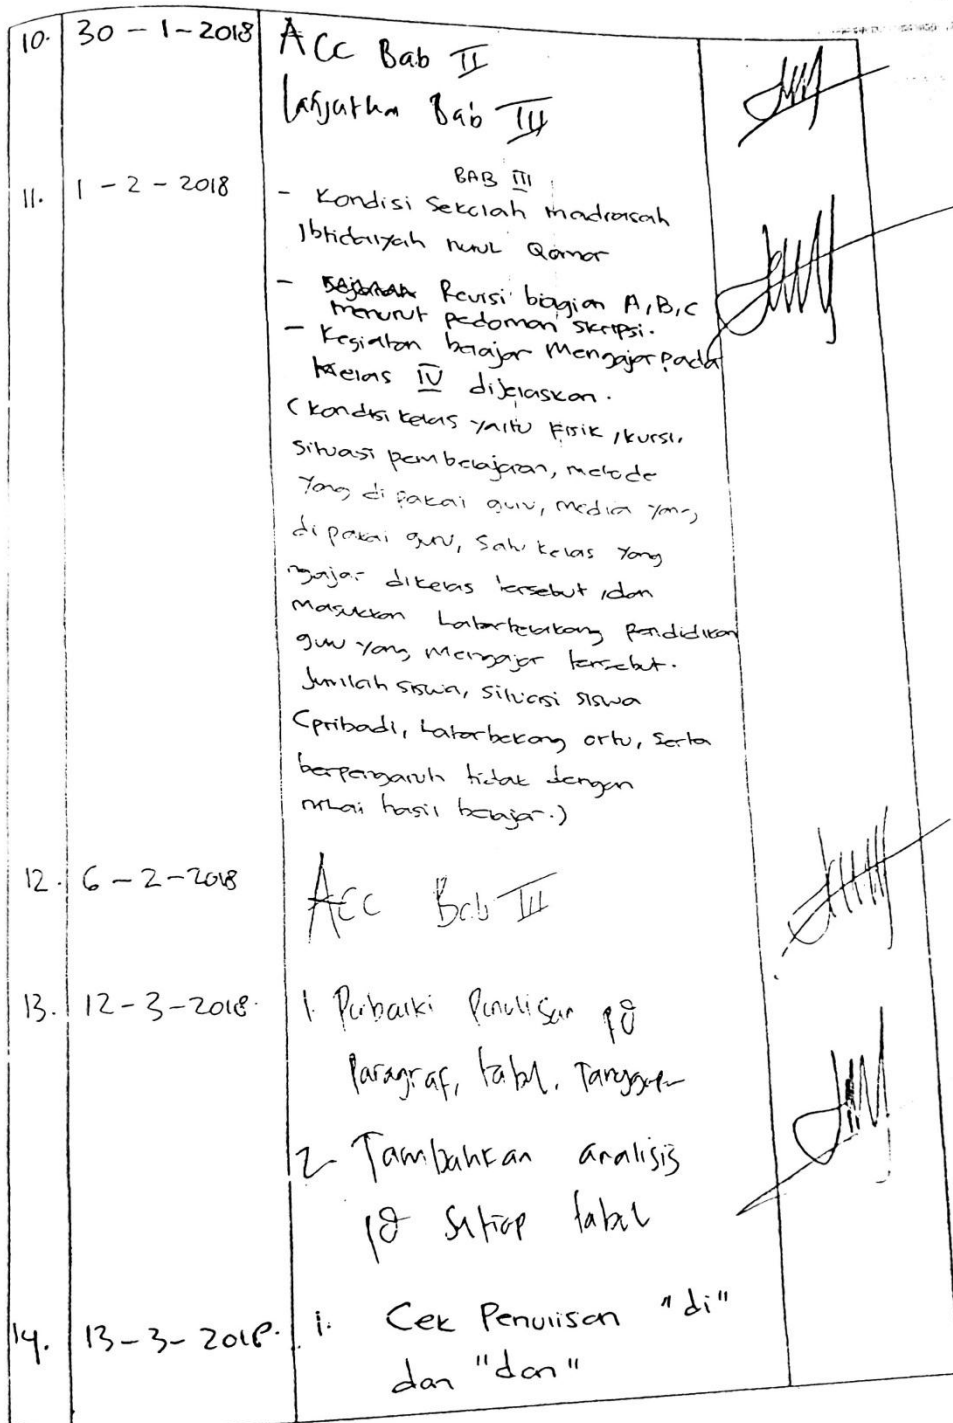 10. 30 - 1 - 2018 Acc Bab II
lanjutkan Bab III
11. 1 - 2 - 2018 BAB III
- Kondisi Sekolah madrasah
Ibtidaiyah nurul Qamar
- Revisi bagian A, B, C
menurut pedoman skripsi.
- Kegiatan belajar Mengajar pada
Kelas IV dijelaskan.
(Kondisi kelas yaitu Fisik, kursi,
Situasi pembelajaran, metode
yang dipakai guru, media yang
dipakai guru, Satu kelas yang
ngajar dikelas tersebut, dan
masukkan Latarbelakang Pendidikan
guru yang mengajar tersebut.
Jumlah siswa, situasi siswa
(pribadi, Latarbekang ortu, Serta
berpengaruh tidak dengan
nilai hasil belajar.)
12. 6 - 2 - 2018 Acc Bab III
13. 12 - 3 - 2018. 1. Perbaiki Penulisan pd
Paragraf, tabel,
2. Tambahkan analisis
pd Setiap tabel
14. 13 - 3 - 2018. 1. Cek Penulisan "di"
dan "dan"